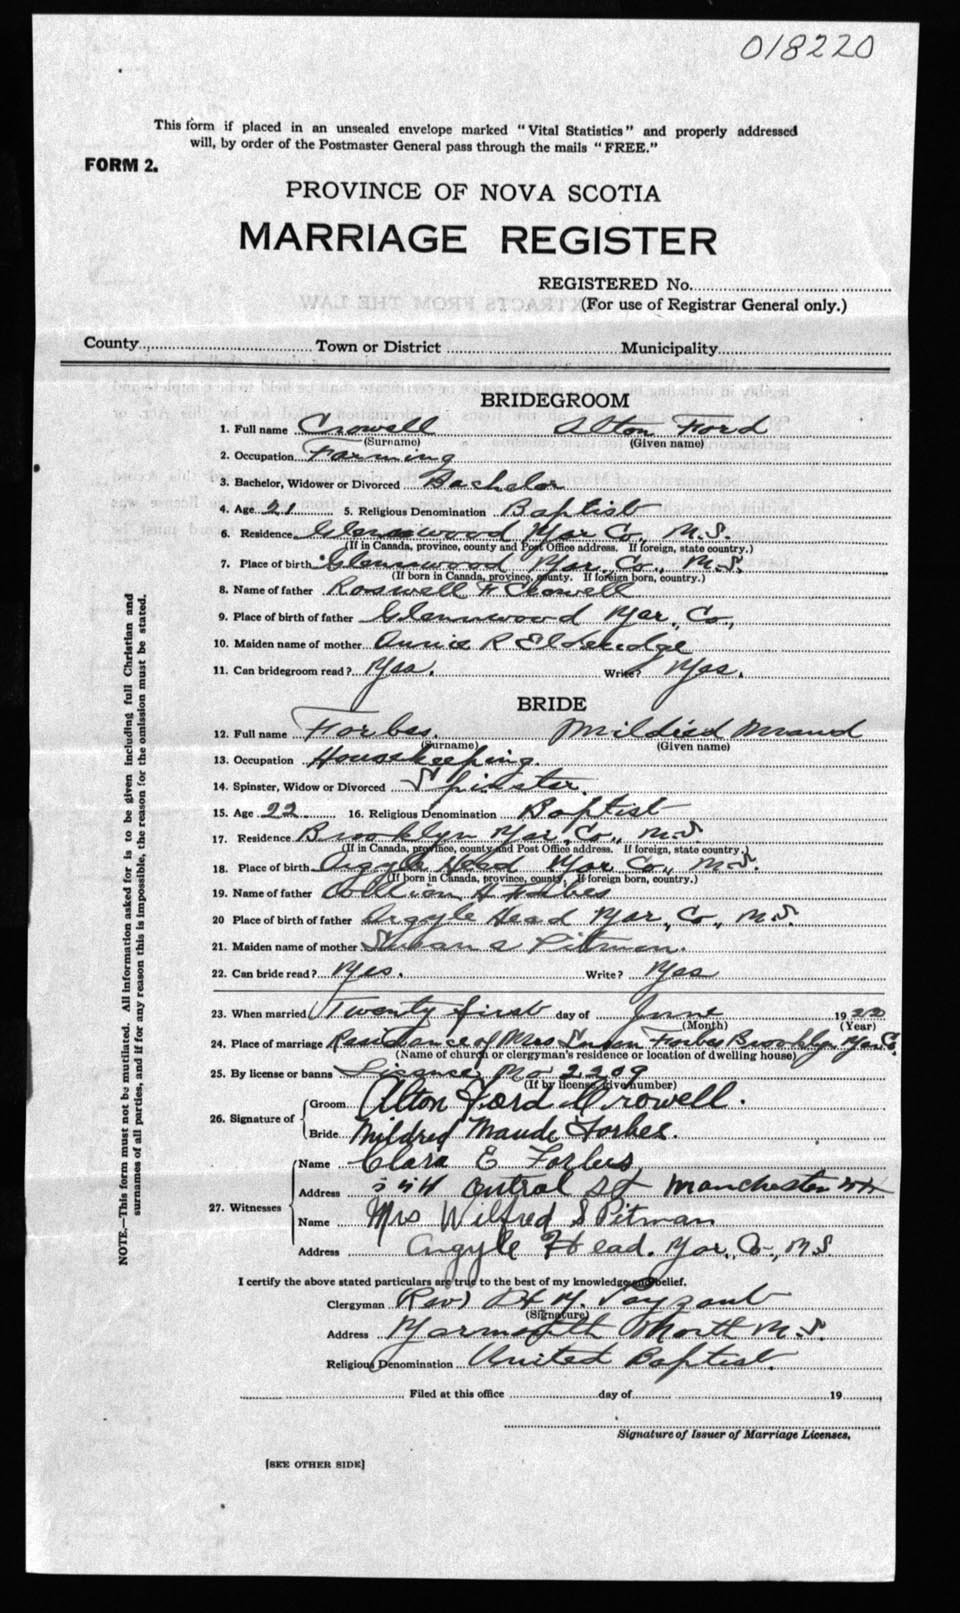 018220
This form if placed in an unsealed envelope marked "Vital Statistics" and properly addressed
will, by order of the Postmaster General pass through the mails "FREE."
FORM 2.
PROVINCE OF NOVA SCOTIA
MARRIAGE REGISTER
REGISTERED No.
(For use of Registrar General only.)
County Town or District Municipality
BRIDEGROOM
1. Full name Crowell Alton Ford
(Surname) (Given name)
2. Occupation Farming
3. Bachelor, Widower or Divorced Bachelor
4. Age 21 5. Religious Denomination Baptist
6. Residence Glennwood Yar Co., N.S.
(If in Canada, province, county and Post Office address. If foreign, state country.)
7. Place of birth Glennwood Yar. Co., N.S.
(If born in Canada, province, county. If foreign born, country.)
8. Name of father Roswell H Crowell
9. Place of birth of father Glennwood Yar., Co.,
10. Maiden name of mother Annie R Elderedge
11. Can bridegroom read? Yes. Write? Yes.
BRIDE
12. Full name Forbes. Mildred Maud
(Surname) (Given name)
13. Occupation Housekeeping.
14. Spinster, Widow or Divorced Spinster.
15. Age 22 16. Religious Denomination Baptist
17. Residence Brooklyn Yar. Co., N.S.
(If in Canada, province, county and Post Office address. If foreign, state country.)
18. Place of birth Argyle Head Yar Co., N.S.
(If born in Canada, province, county. If foreign born, country.)
19. Name of father William H Forbes
20 Place of birth of father Argyle Head Yar., Co., N.S.
21. Maiden name of mother Susan A Pitman.
22. Can bride read? Yes. Write? Yes
23. When married Twenty first day of June 1922
(Month) (Year)
24. Place of marriage Residance of Mrs Susan Forbes Brooklyn Yar Co.
(Name of church or clergyman's residence or location of dwelling house)
25. By license or banns License No 2209
(If by license, give number)
26. Signature of Groom Alton Ford Crowell.
Bride Mildred Maude Forbes.
27. Witnesses Name Clara E Forbes
Address Central St Manchester NH
Name Mrs Wilfred S Pitman
Address Argyle Head. Yar. Co., N.S.
I certify the above stated particulars are true to the best of my knowledge and belief.
Clergyman (Rev) Payzant
(Signature)
Address Yarmouth North N.S.
Religious Denomination United Baptist.
Filed at this office day of 19
Signature of Issuer of Marriage Licenses.
[SEE OTHER SIDE]
NOTE.—This form must not be mutilated. All information asked for is to be given including full Christian and
surnames of all parties, and if for any reason this is impossible, the reason for the omission must be stated.